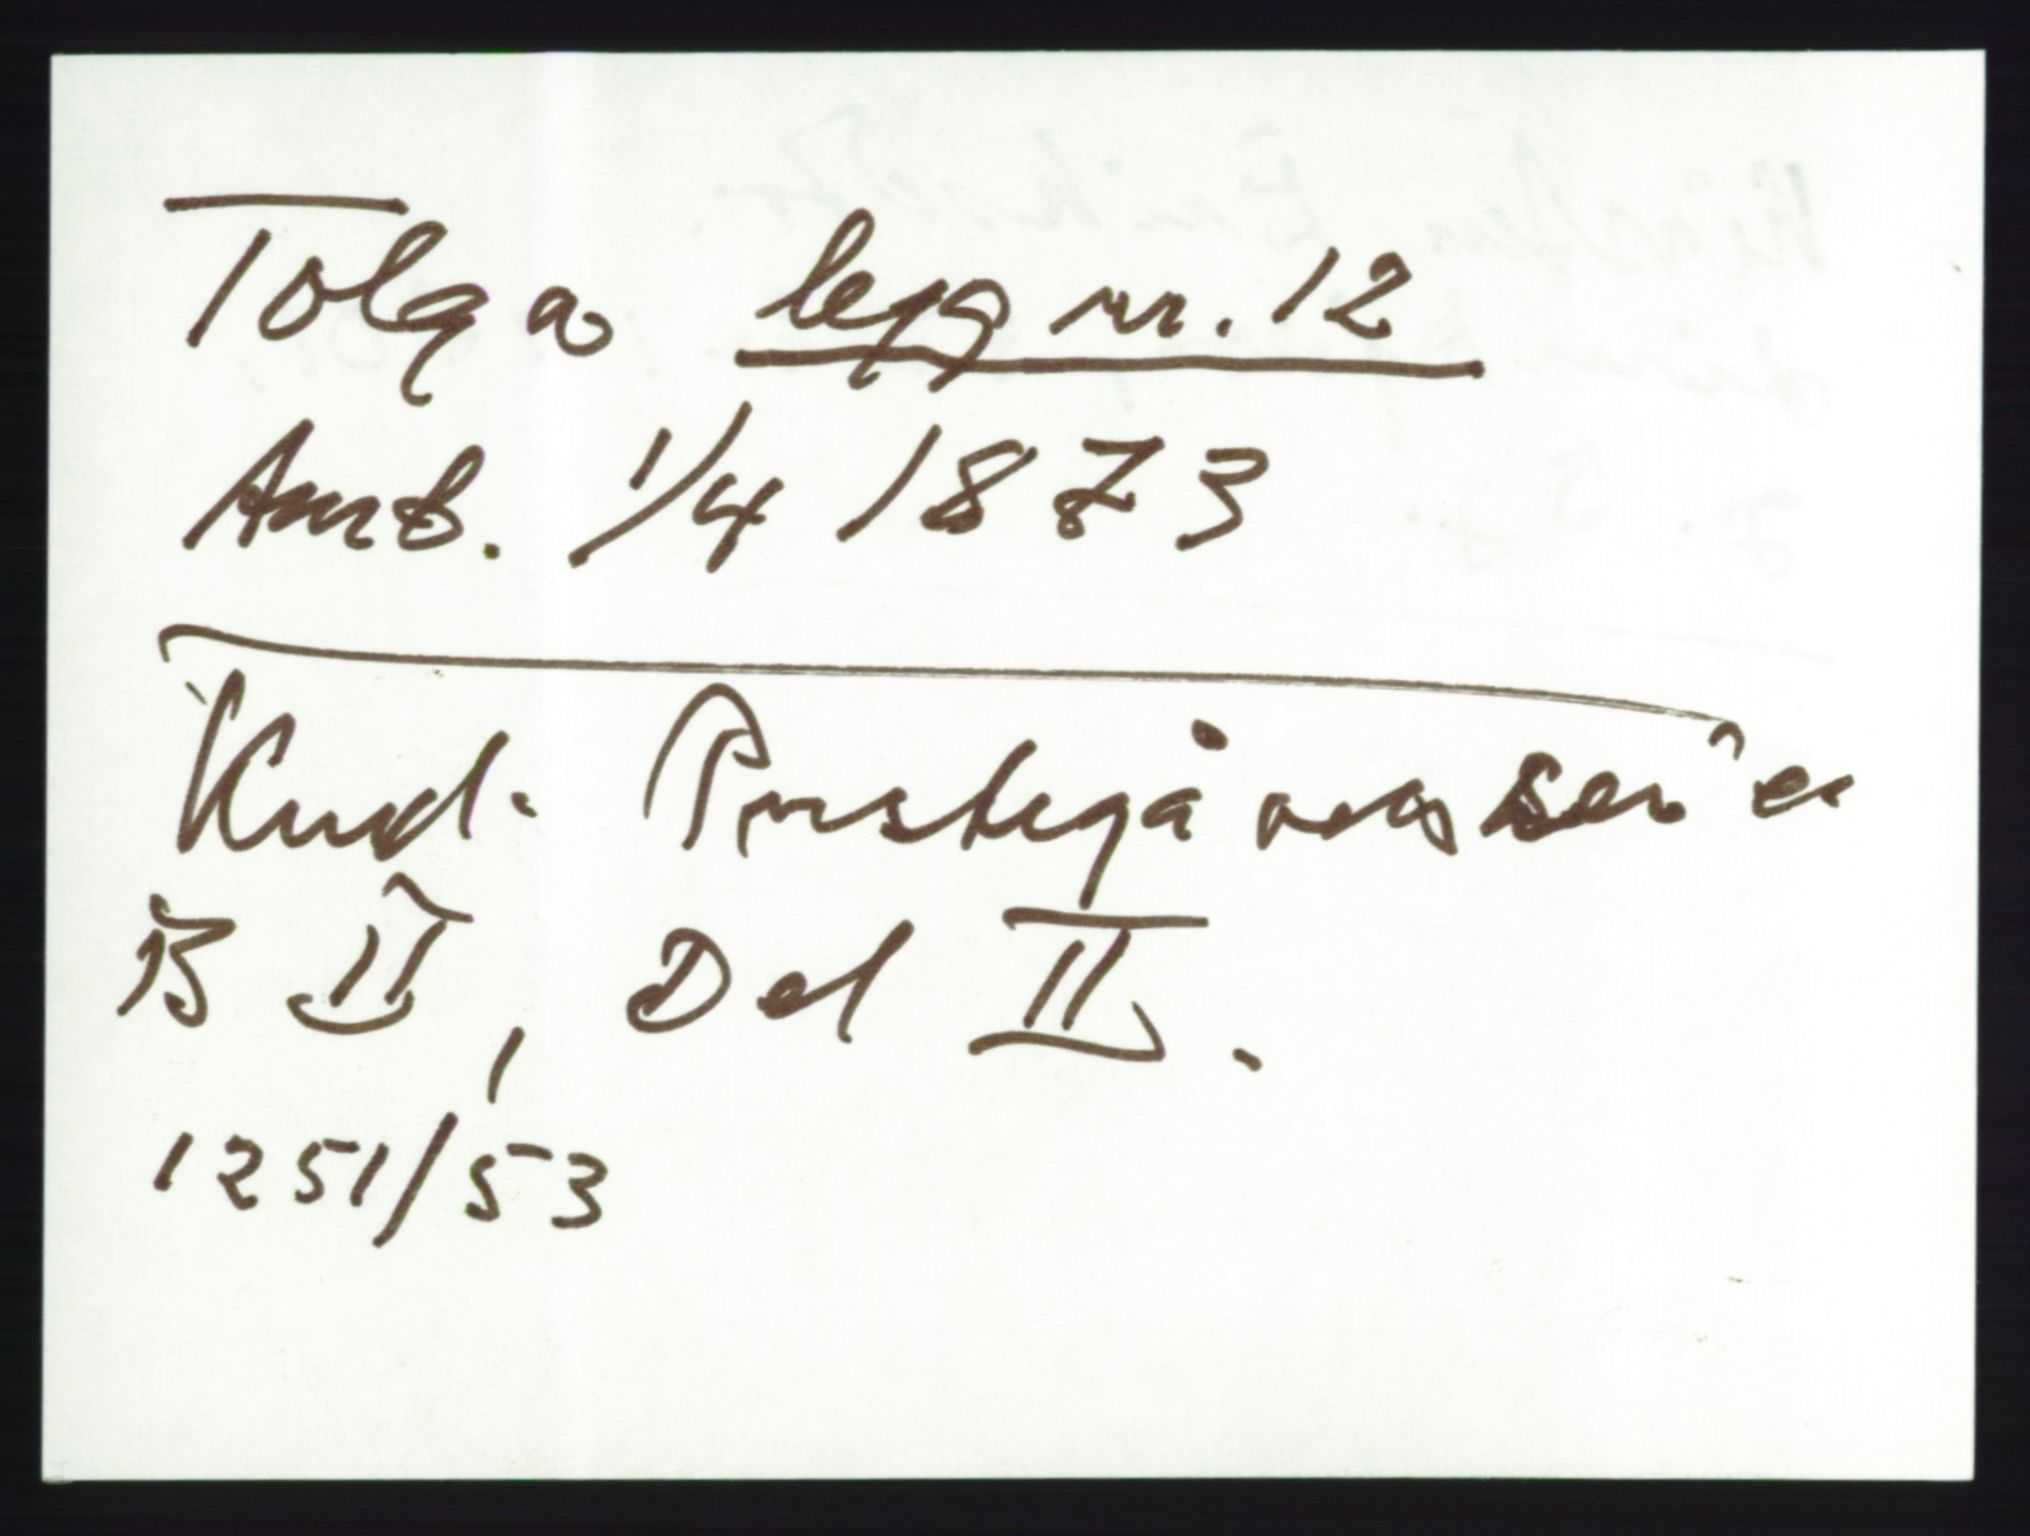 Tolga legg nr. 12
Amb. 1/4 1873
Kud. Prestegårdsserie
B II, Del II.
1251/53